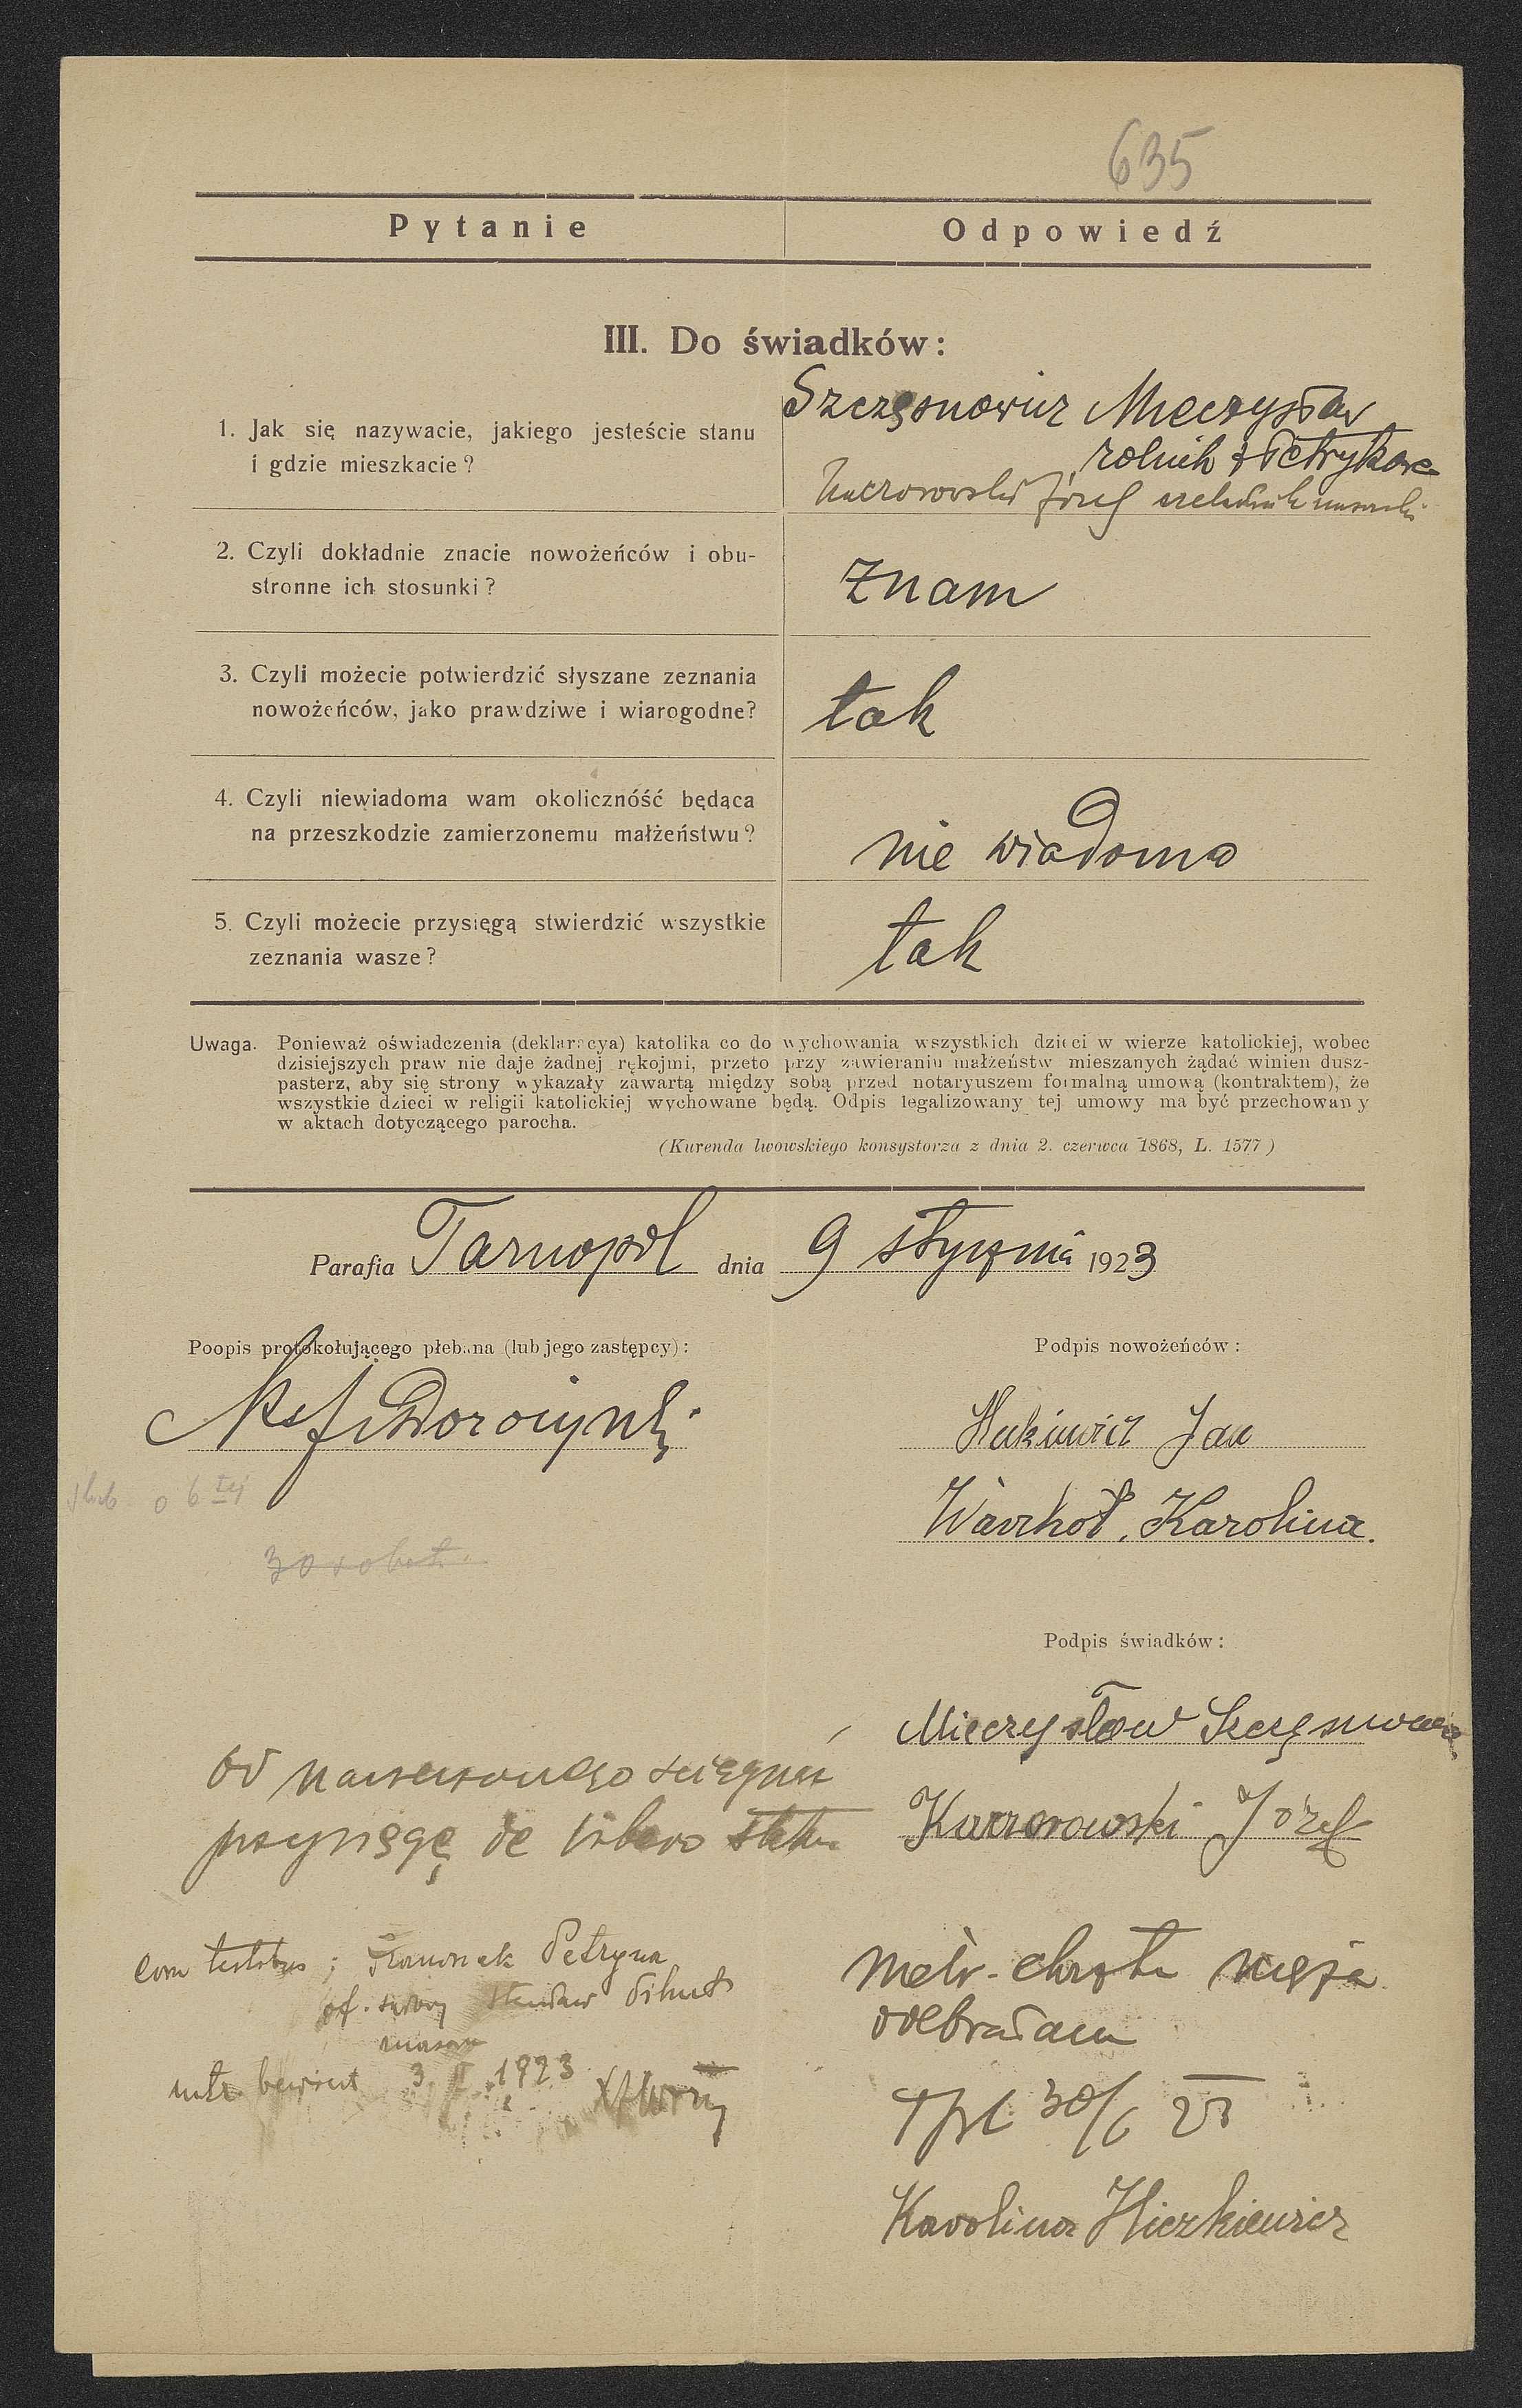 635
Pytanie
Odpowiedź
III. Do świadków:
1. Jak się nazywacie, jakiego jesteście stanu
i gdzie mieszkacie?
Szczęsnowicz Mieczysław
rolnik z Petrykowa
Kaczorowski Józef czeladnik masarski
2. Czyli dokładnie znacie nowożeńców i obu-
stronne ich stosunki?
znam
3. Czyli możecie potwierdzić słyszane zeznania
nowożeńców, jako prawdziwe i wiarogodne?
tak
4. Czyli niewiadoma wam okolicznóść będąca
na przeszkodzie zamierzonemu małżeństwu?
nie wiadomo
5. Czyli możecie przysięgą stwierdzić wszystkie
zeznania wasze?
tak
Uwaga. Ponieważ oświadczenia (deklaracya) katolika co do wychowania wszystkich dzieci w wierze katolickiej, wobec
dzisiejszych praw nie daje żadnej rękojmi, przeto przy zawieraniu małżeństw mieszanych żądać winien dusz-
pasterz, aby się strony wykazały zawartą między sobą przed notaryuszem formalną umową (kontraktem), że
wszystkie dzieci w religii katolickiej wychowane będą. Odpis legalizowany tej umowy ma być przechowany
w aktach dotyczącego parocha.
(Kurenda lwowskiego konsystorza z dnia 2. czerwca 1868, L. 1577)
Parafia Tarnopol dnia 9 stycznia 1923
Poopis protokołującego płebana (lub jego zastępcy):
Podpis nowożeńców:
Jan
ślub o 6 tej
Karolina.
30
Podpis świadków:
Mieczysław Szczęsnowicz
Od narzeczonego ściągnąć
przysięgę de libero statu
Kaczorowski Józef
cum testibus; Petryna
Metr. chrztu męża
odebrałam
1923
Tpl 30/6 23
Karolina Hickiewicz